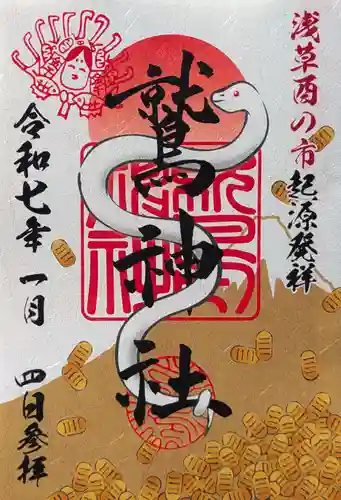 浅草酉の市
起源発祥
鷲神社
令和七年
一月
四日参拝